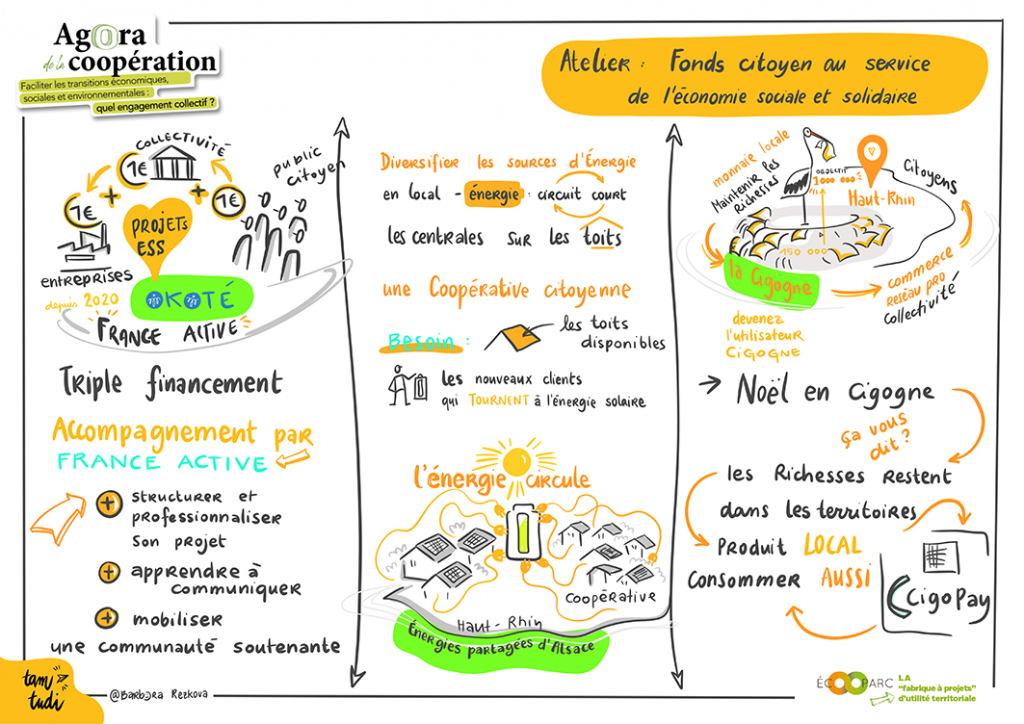 Agora
de la coopération
Faciliter les transitions économiques,
sociales et environnementales :
quel engagement collectif ?
Atelier : Fonds citoyen au service
de l'économie sociale et solidaire
COLLECTIVITÉ
1€
public
citoyen
+
+
1€
1€
PROJETS
ESS
entreprises
depuis 2020
OKOTÉ
FRANCE ACTIVE
Triple financement
Accompagnement par
FRANCE ACTIVE
+ structurer et
professionnaliser
son projet
+ apprendre à
communiquer
+ mobiliser
une communauté soutenante
Diversifier les sources d'Énergie
en local - énergie : circuit court
les centrales sur les toits
une Coopérative citoyenne
Besoin :
les toits
disponibles
les nouveaux clients
qui TOURNENT à l'énergie solaire
l'énergie circule
Coopérative
Haut-Rhin
Énergies partagées d'Alsace
monnaie locale
Maintenir les
Richesses
OBJECTIF
1 000 000 €
Haut-Rhin
Citoyens
150 000
la Cigogne
commerce
Reseau pro
collectivité
devenez
l'utilisateur
CIGOGNE
→ Noël en Cigogne
ça vous
dit ?
les Richesses restent
dans les territoires
Produit LOCAL
Consommer AUSSI
CigoPay
tam
tudi
@Barbora Rezkova
ÉCOOPARC
LA
"fabrique à projets"
d'utilité territoriale